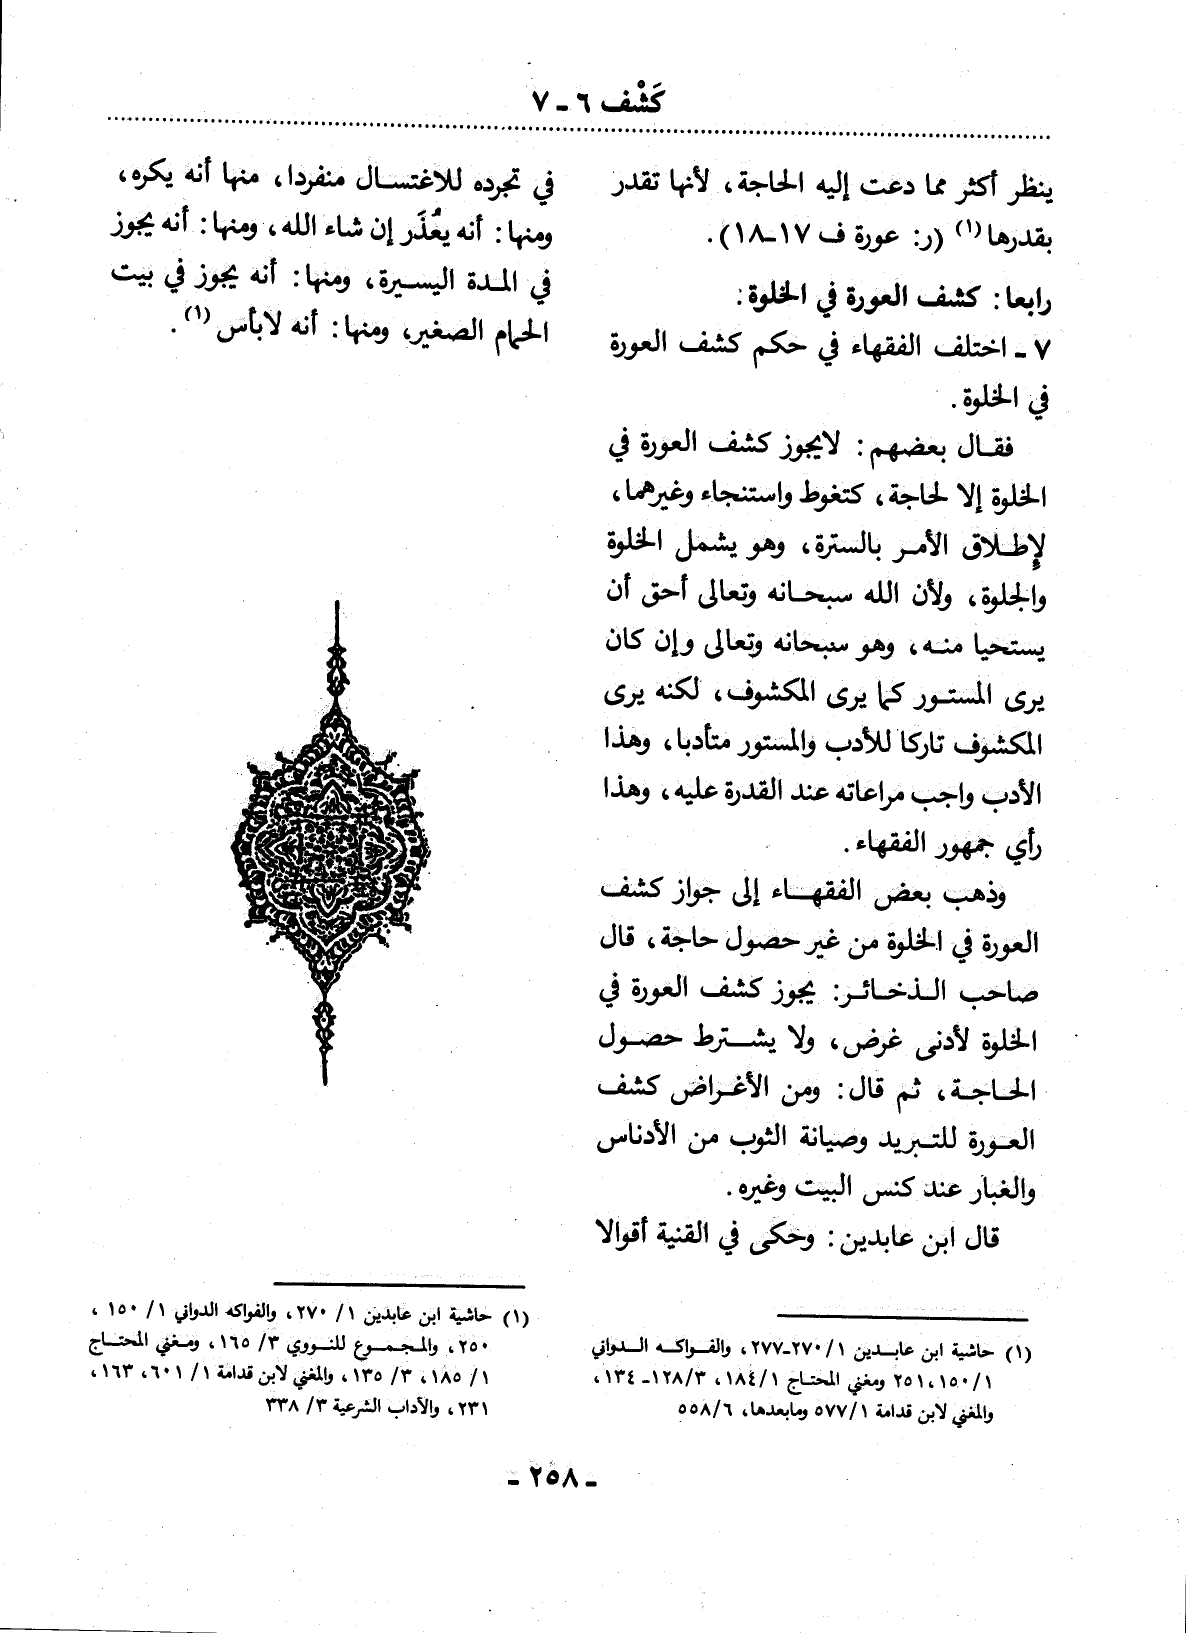 كَشْف ٦ - ٧
ينظر أكثر مما دعت إليه الحاجة، لأنها تقدر
بقدرها (١) (ر: عورة ف ١٧-١٨).
رابعا: كشف العورة في الخلوة:
٧ - اختلف الفقهاء في حكم كشف العورة
في الخلوة.
فقال بعضهم: لايجوز كشف العورة في
الخلوة إلا لحاجة، كتغوط واستنجاء وغيرهما،
لإطلاق الأمر بالسترة، وهو يشمل الخلوة
والجلوة، ولأن الله سبحانه وتعالى أحق أن
يستحيا منه، وهو سبحانه وتعالى وإن كان
يرى المستور كما يرى المكشوف، لكنه يرى
المكشوف تاركا للأدب والمستور متأدبا، وهذا
الأدب واجب مراعاته عند القدرة عليه، وهذا
رأي جمهور الفقهاء.
وذهب بعض الفقهاء إلى جواز كشف
العورة في الخلوة من غير حصول حاجة، قال
صاحب الذخائر: يجوز كشف العورة في
الخلوة لأدنى غرض، ولا يشترط حصول
الحاجة، ثم قال: ومن الأغراض كشف
العورة للتبريد وصيانة الثوب من الأدناس
والغبار عند كنس البيت وغيره.
قال ابن عابدين: وحكى في القنية أقوالا
(١) حاشية ابن عابدين ١/ ٢٧٠-٢٧٧، والفواكه الدواني
١/ ١٥٠، ٢٥١ ومغني المحتاج ١/ ١٨٤، ٣/ ١٢٨- ١٣٤،
والمغني لابن قدامة ١/ ٥٧٧ ومابعدها، ٦/ ٥٥٨
في تجرده للاغتسال منفردا، منها أنه يكره،
ومنها: أنه يعُذَر إن شاء الله، ومنها: أنه يجوز
في المدة اليسيرة، ومنها: أنه يجوز في بيت
الحمام الصغير، ومنها: أنه لابأس (١).
(١) حاشية ابن عابدين ١/ ٢٧٠، والفواكه الدواني ١/ ١٥٠،
٢٥٠، والمجموع للنووي ٣/ ١٦٥، ومغني المحتاج
١/ ١٨٥، ٣/ ١٣٥، والمغني لابن قدامة ١/ ٦٠١، ١٦٣،
٢٣١، والآداب الشرعية ٣/ ٣٣٨
- ٢٥٨ -